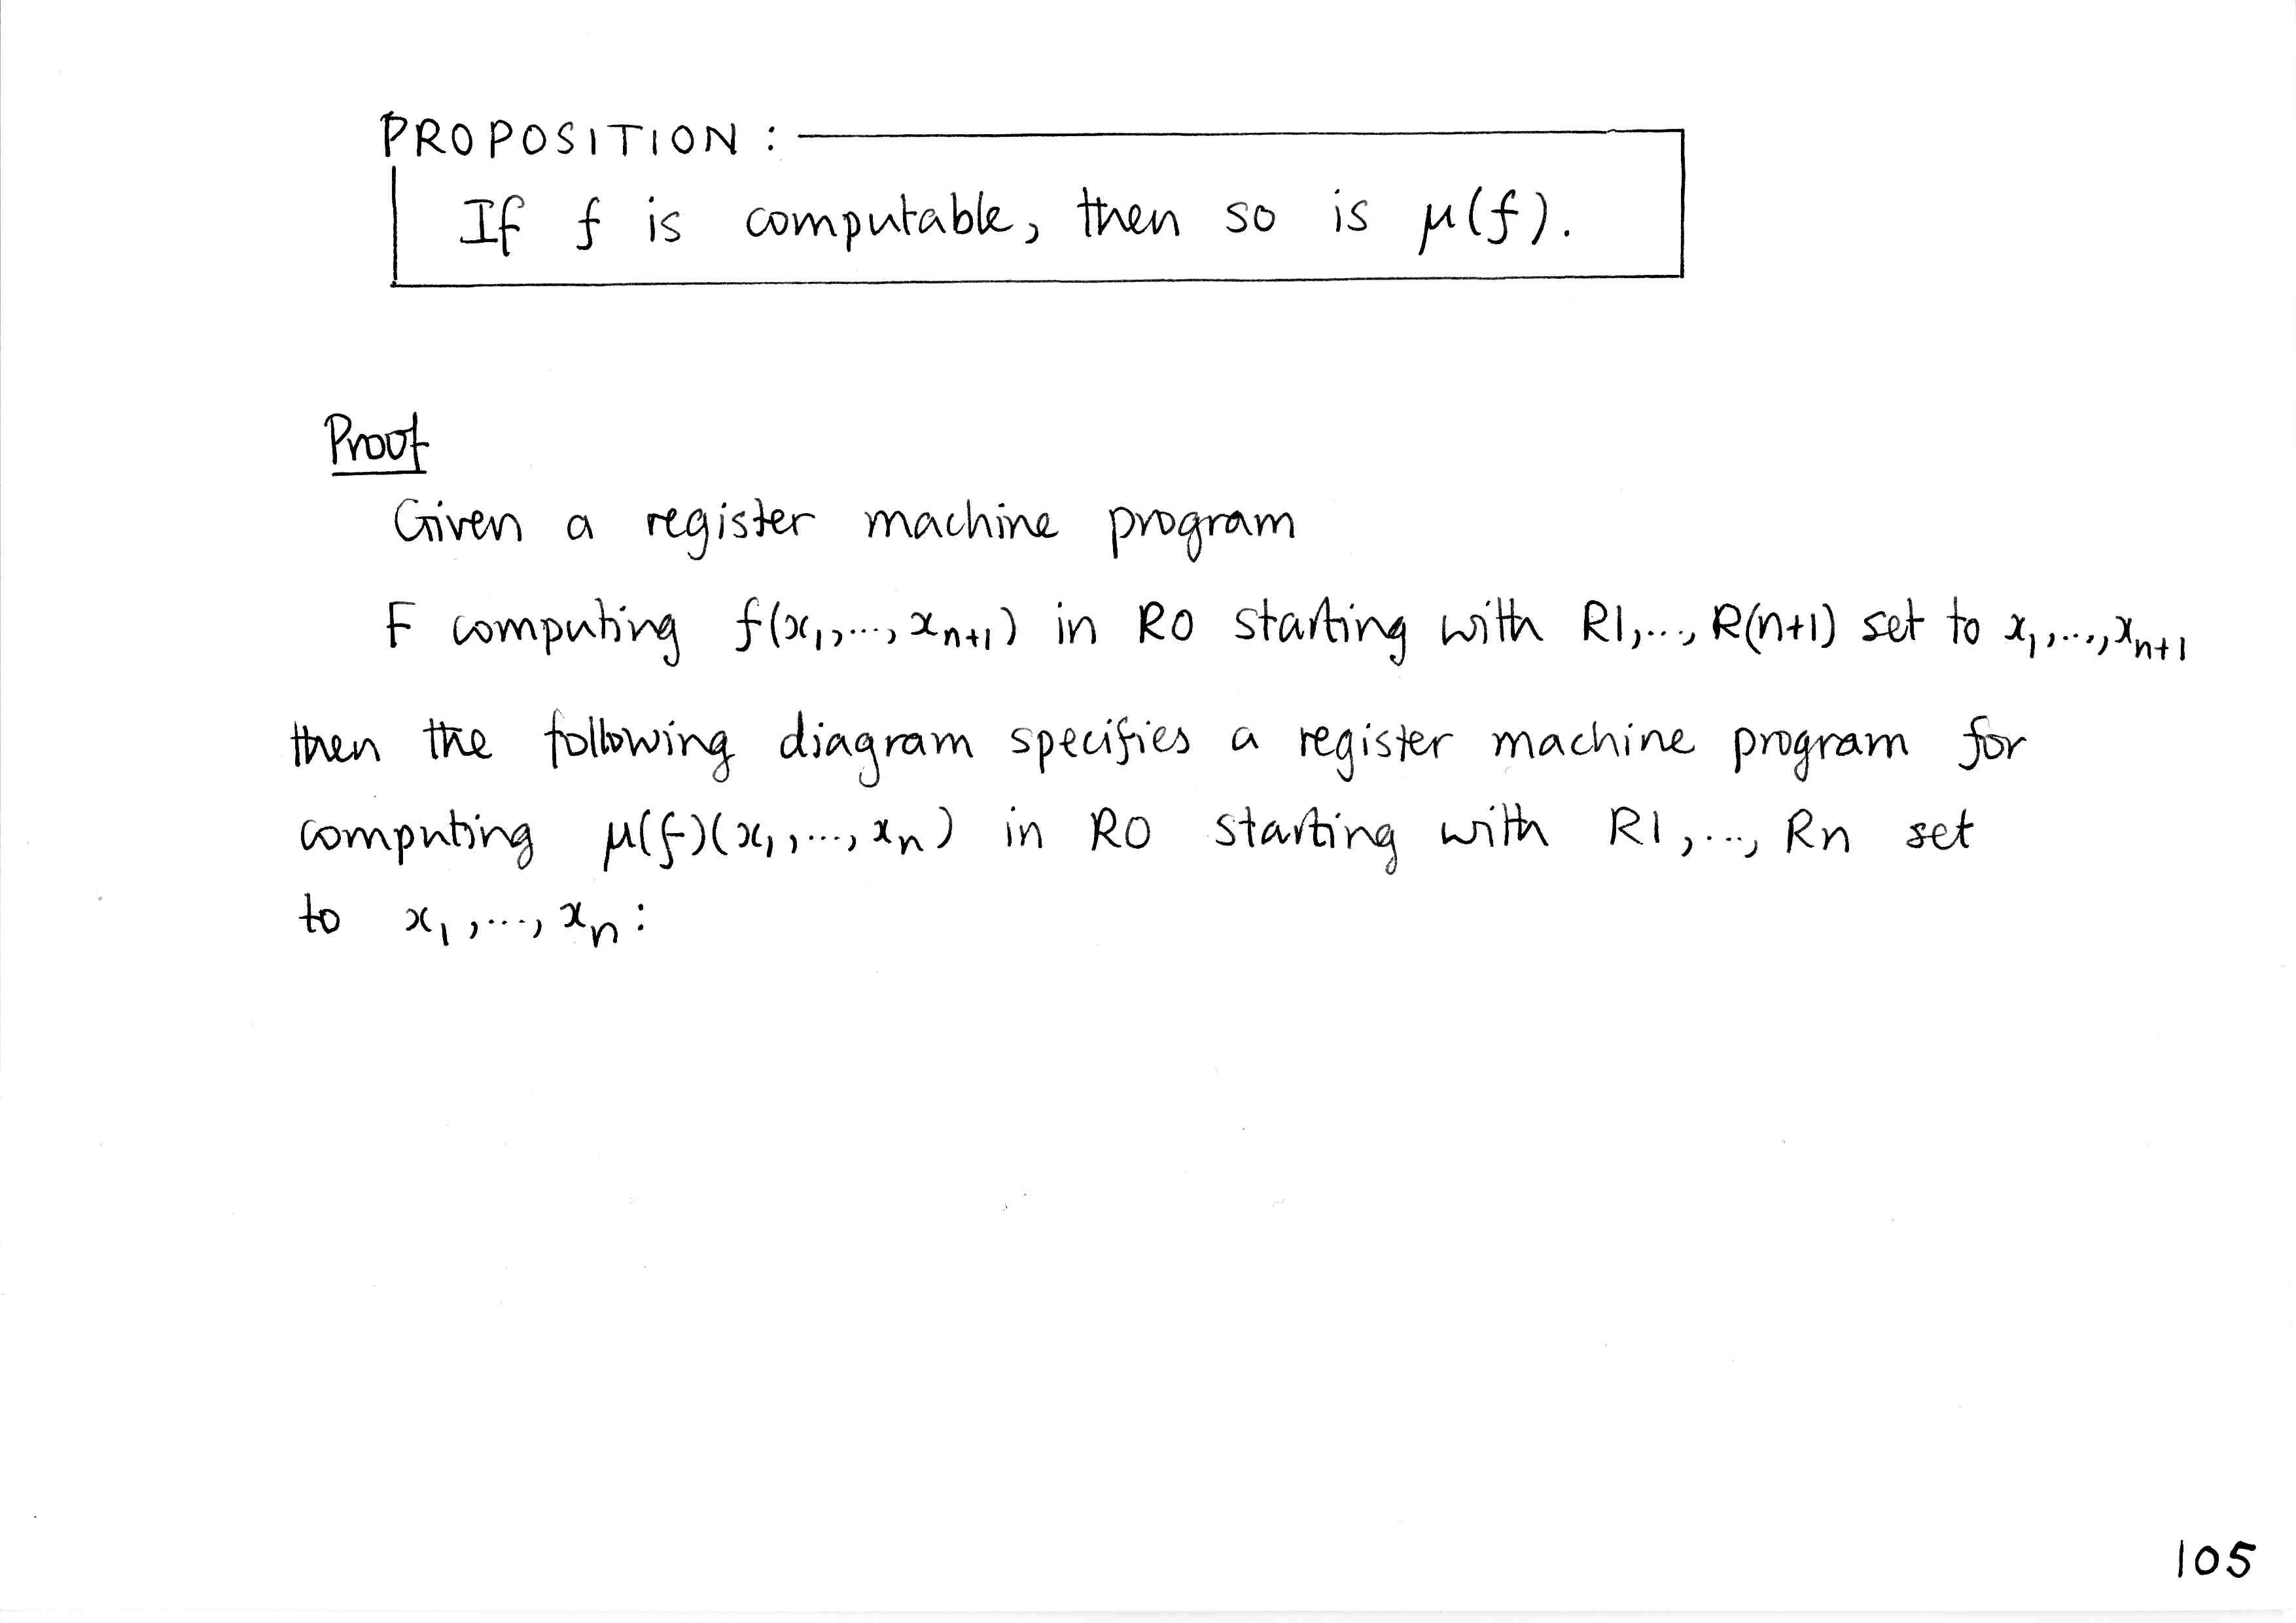 PROPOSITION :
If f is computable, then so is μ(f).
Proof
Given a register machine program
F computing f(x₁,..., xₙ₊₁) in R0 starting with R1,..., R(n+1) set to x₁,...,xₙ₊₁
then the following diagram specifies a register machine program for
computing μ(f)(x₁,..., xₙ) in R0 starting with R1,..., Rn set
to x₁,..., xₙ:
105